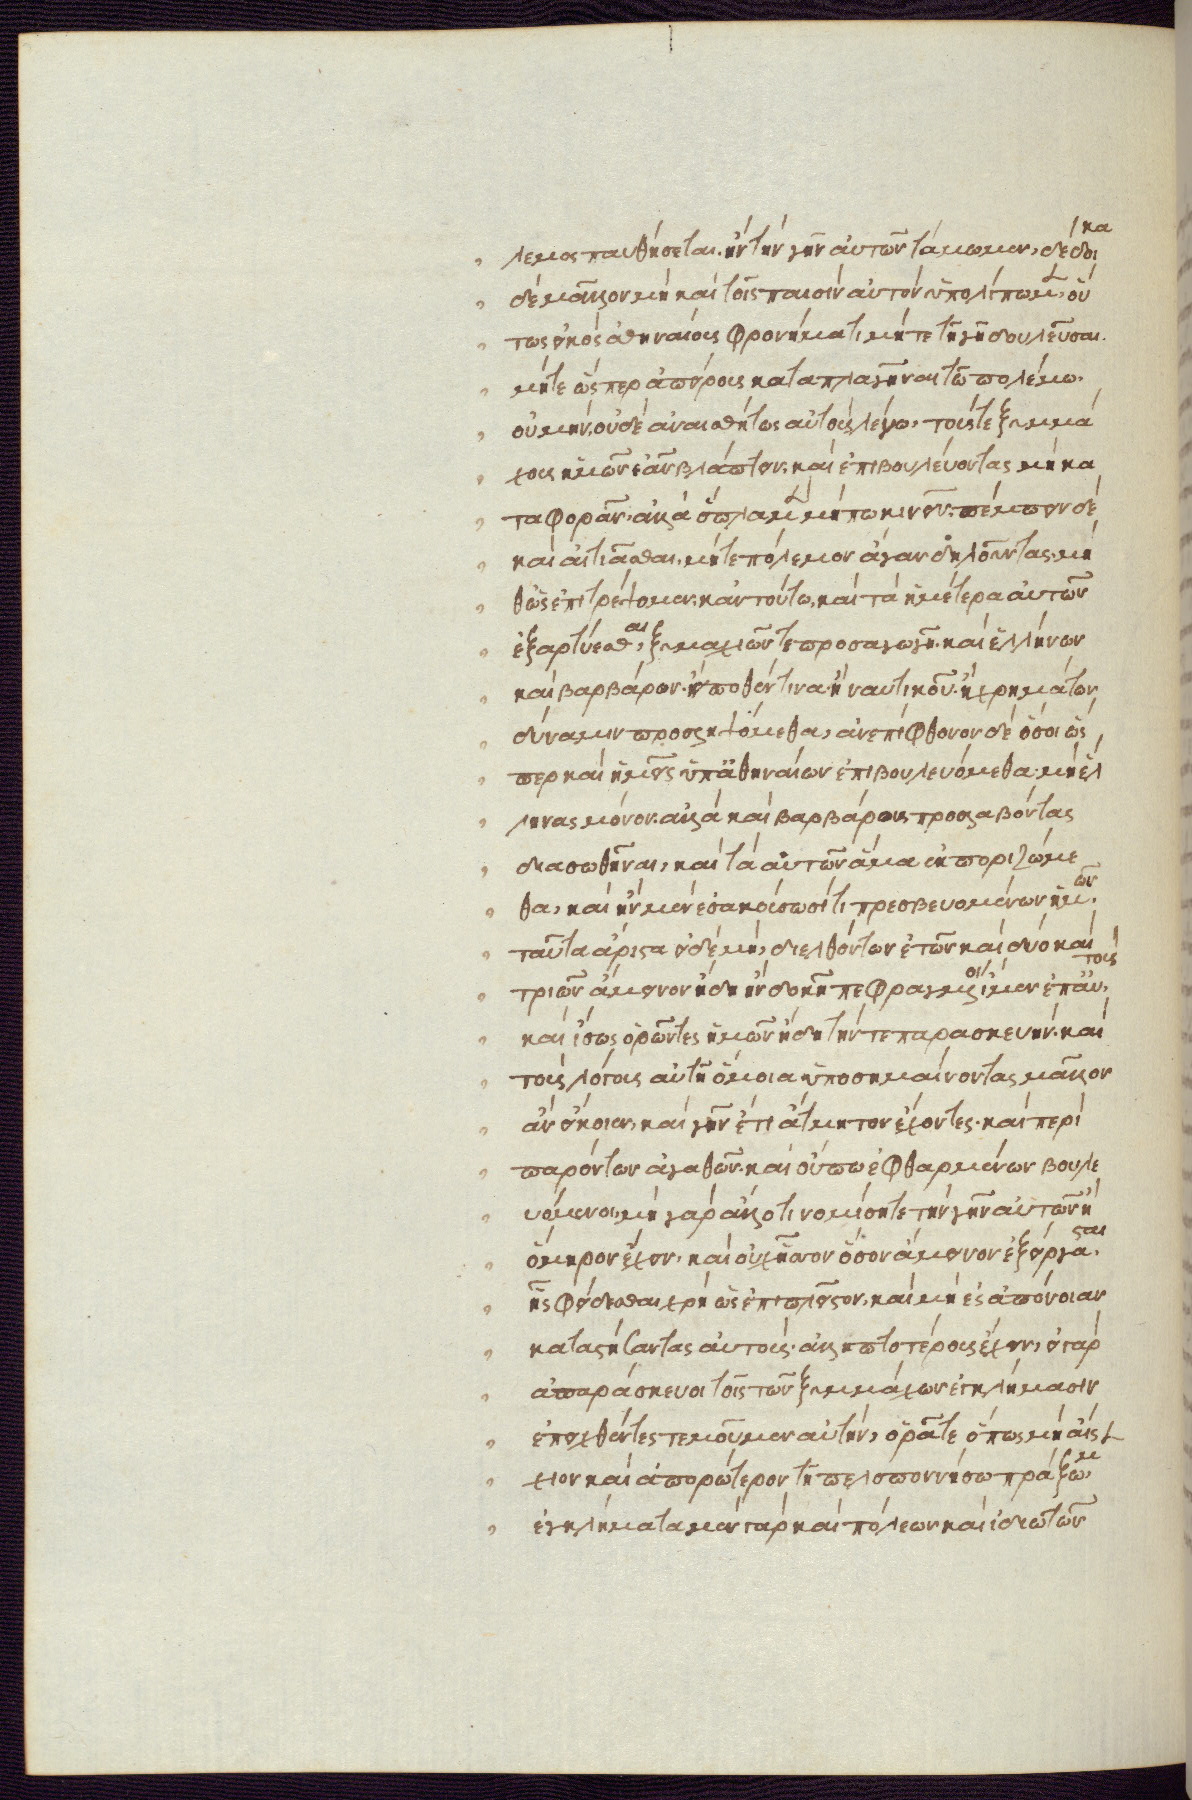 λεμος παυθήσεται. ἢν τὴν γῆν αὐτῶν τάμωμεν, δέδοικα
δὲ μᾶλλον μὴ καὶ τοῖς παισὶν αὐτὸν ὑπολίπωμεν, οὕ
τως εἰκὸς ἀθηναίοις φρονήματι μήτε τῇ γῇ δουλεῦσαι.
μήτε ὥσπερ ἀπείροις καταπλαγῆναι τῶ πολέμω.
οὐ μὴν οὐδὲ ἀναισθήτως αὐτοὺς λέγω, τούς τε ξυμμά
χοις ἡμῶν ἐᾶν βλάπτειν. καὶ ἐπιβουλεύοντας μὴ κα
ταφορᾶν. ἀλλὰ ὅπλα μὲν μήπω κινεῖν. πέμπειν δὲ
καὶ αἰτιᾶσθαι. μήτε πόλεμον ἄγαν δηλοῦντας. μή
θ' ὡς ἐπιτρέψομεν. κἀν τούτω. καὶ τὰ ἡμέτερα αὐτῶν
ἐξαρτύεσθαι, ξυμμαχιῶν τε προσαγωγῆ. καὶ ἑλλήνων
καὶ βαρβάρων. εἴ ποθέν τινα. ἢ ναυτικοῦ. ἢ χρημάτων
δύναμιν προσληψόμεθα, ἀνεπίφθονον δὲ ὅσοι ὥσ
περ καὶ ἡμεῖς ὑπ' ἀθηναίων ἐπιβουλευόμεθα. μὴ ἕλ
ληνας μόνον. ἀλλὰ καὶ βαρβάρους προσλαβόντας
διασωθῆναι, καὶ τὰ αὑτῶν ἅμα ἐκποριζώμε
θα, καὶ ἢν μὲν ἐσακούσωσί τι πρεσβευομένων ἡμῶν.
ταῦτα ἄριστα. εἰ δὲ μὴ, διελθόντων ἐτῶν καὶ δύο καὶ
τριῶν ἄμεινον ἤδη ἢν δοκῆ πεφραγμένοι ἴμεν ἐπ' αὐτοὺς,
καὶ ἴσως ὁρῶντες ἡμῶν ἤδη τήν τε παρασκευὴν. καὶ
τοὺς λόγους αὐτῆ ὅμοια ὑποσημαίνοντας μᾶλλον
ἂν εἴκοιεν, καὶ γῆν ἔτι ἄτμητον ἔχοντες. καὶ περὶ
παρόντων ἀγαθῶν. καὶ οὔπω ἐφθαρμένων βουλε
υόμενοι. μὴ γὰρ ἄλλο τι νομίσητε τὴν γῆν αὐτῶν ἢ
ὅμηρον ἔχειν. καὶ οὐχ ἧσσον ὅσον ἄμεινον ἐξείργασται.
ἧς φείδεσθαι χρὴ ὡς ἐπιπλεῖστον. καὶ μὴ ἐς ἀπόνοιαν
καταστήσαντας αὐτοὺς. ἀληπτοτέρους ἔχειν, εἰ γὰρ
ἀπαράσκευοι τοῖς τῶν ξυμμάχων ἐγκλήμασιν
ἐπειχθέντες τεμοῦμεν αὐτὴν, ὁρᾶτε ὅπως μὴ αἴσ
χιον καὶ ἀπορώτερον τῆ πελοποννήσω πράξωμεν,
ἐγκλήματα μὲν γὰρ καὶ πόλεων καὶ ἰδιωτῶν